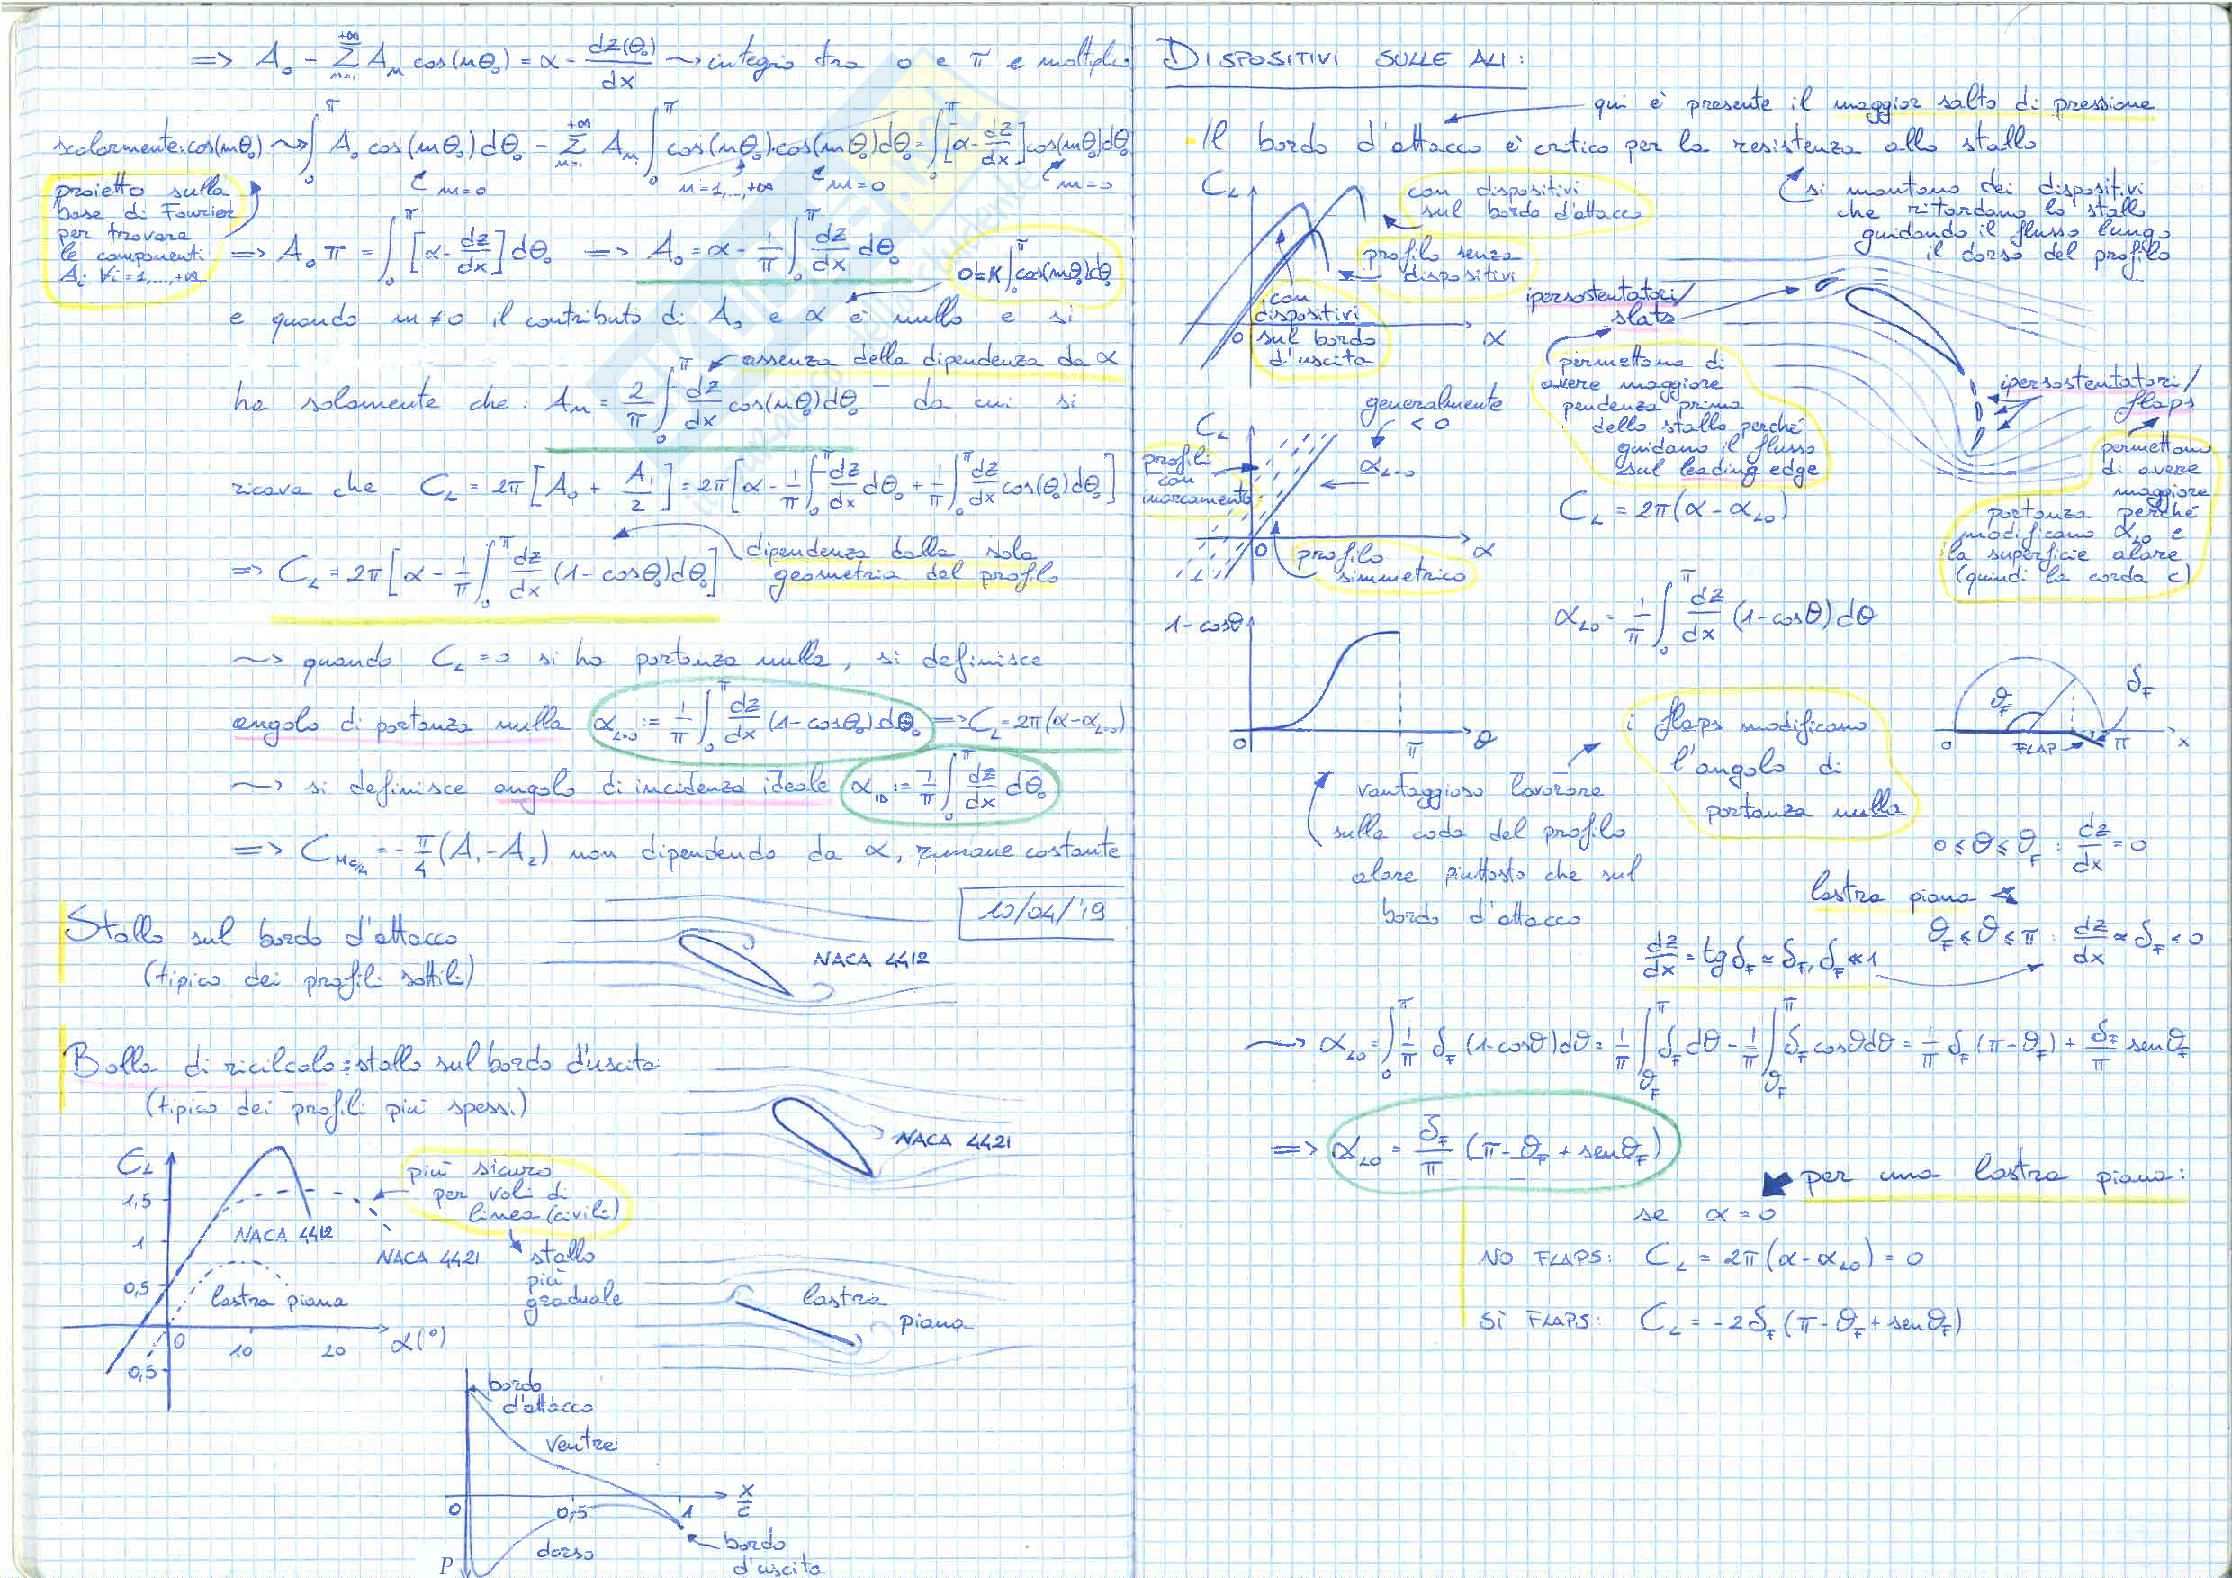 => A₀ - Σ_{n=1}^{+∞} Aₙ cos(nθ₀) = α - dz(θ₀)/dx ~> integro tra 0 e π e moltiplico
scalarmente·cos(mθ₀) ~> ∫₀^π A₀ cos(mθ₀)dθ₀ - Σ_{n=1}^{+∞} Aₙ ∫₀^π cos(nθ₀)·cos(mθ₀)dθ₀ = ∫₀^π [α - dz/dx] cos(mθ₀)dθ₀
m=0 n=1,...,+∞ m=0 m=0
proietto sulla
base di Fourier
per trovare
le componenti
Aᵢ ∀i=1,...,+∞
=> A₀π = ∫₀^π [α - dz/dx] dθ₀ => A₀ = α - 1/π ∫₀^π dz/dx dθ₀
0=K∫₀^π cos(mθ₀)dθ₀
e quando m≠0 il contributo di A₀ e α è nullo e si
assenza della dipendenza da α
ha solamente che: Aₙ = 2/π ∫₀^π dz/dx cos(nθ₀)dθ₀ da cui si
ricava che C_L = 2π[A₀ + A₁/2] = 2π[α - 1/π ∫₀^π dz/dx dθ₀ + 1/π ∫₀^π dz/dx cos(θ₀)dθ₀]
=> C_L = 2π[α - 1/π ∫₀^π dz/dx (1-cosθ₀)dθ₀]
dipendenza dalla sola
geometria del profilo
~> quando C_L=0 si ha portanza nulla, si definisce
angolo di portanza nulla α_{L=0} := 1/π ∫₀^π dz/dx (1-cosθ₀)dθ₀ => C_L = 2π(α-α_{L=0})
~> si definisce angolo di incidenza ideale α_{ID} := 1/π ∫₀^π dz/dx dθ₀
=> C_{Mc/4} = -π/4 (A₁-A₂) non dipendendo da α, rimane costante
10/04/'19
Stallo sul bordo d'attacco
(tipico dei profili sottili)
NACA 4412
Bolla di ricilcolo: stallo sul bordo d'uscita
(tipico dei profili più spessi)
NACA 4421
C_L
1,5
1
0,5
0
10
20
α(°)
0,5
NACA 4412
NACA 4421
lastra piana
più sicuro
per voli di
linea (civili)
stallo
più
graduale
lastra
piana
bordo
d'attacco
ventre
0
0,5
1
x/c
dorso
P
bordo
d'uscita
DISPOSITIVI SULLE ALI:
qui è presente il maggior salto di pressione
- Il bordo d'attacco è critico per la resistenza allo stallo
si montano dei dispositivi
che ritardano lo stallo
guidando il flusso lungo
il dorso del profilo
C_L
con dispositivi
sul bordo d'attacco
profilo senza
dispositivi
con
dispositivi
sul bordo
d'uscita
0
α
ipersostentatori/
slats
permettono di
avere maggiore
pendenza prima
dello stallo perché
guidano il flusso
sul leading edge
ipersostentatori/
flaps
permettono
di avere
maggiore
portanza perché
modificano α_{L0} e
la superficie alare
(quindi la corda c)
generalmente
< 0
C_L
α_{L=0}
profili
con
inarcamento
0
α
profilo
simmetrico
C_L = 2π(α-α_{L0})
α_{L0} = 1/π ∫₀^π dz/dx (1-cosθ)dθ
1-cosθ
0
π
θ
vantaggioso lavorare
sulla coda del profilo
alare piuttosto che sul
bordo d'attacco
i flaps modificano
l'angolo di
portanza nulla
ϑ_F
δ_F
0
FLAP
π
x
0≤ϑ≤ϑ_F : dz/dx = 0
lastra piana
ϑ_F≤ϑ≤π : dz/dx ≈ δ_F < 0
dz/dx = tgδ_F ≈ δ_F, δ_F ≪ 1
~> α_{L0} = ∫₀^π 1/π δ_F (1-cosϑ)dϑ = 1/π ∫_{ϑ_F}^π δ_F dϑ - 1/π ∫_{ϑ_F}^π δ_F cosϑdϑ = 1/π δ_F (π-ϑ_F) + δ_F/π senϑ_F
=> α_{L0} = δ_F/π (π-ϑ_F+senϑ_F)
per una lastra piana:
se α=0
NO FLAPS: C_L = 2π(α-α_{L0}) = 0
SÌ FLAPS: C_L = -2δ_F(π-ϑ_F+senϑ_F)